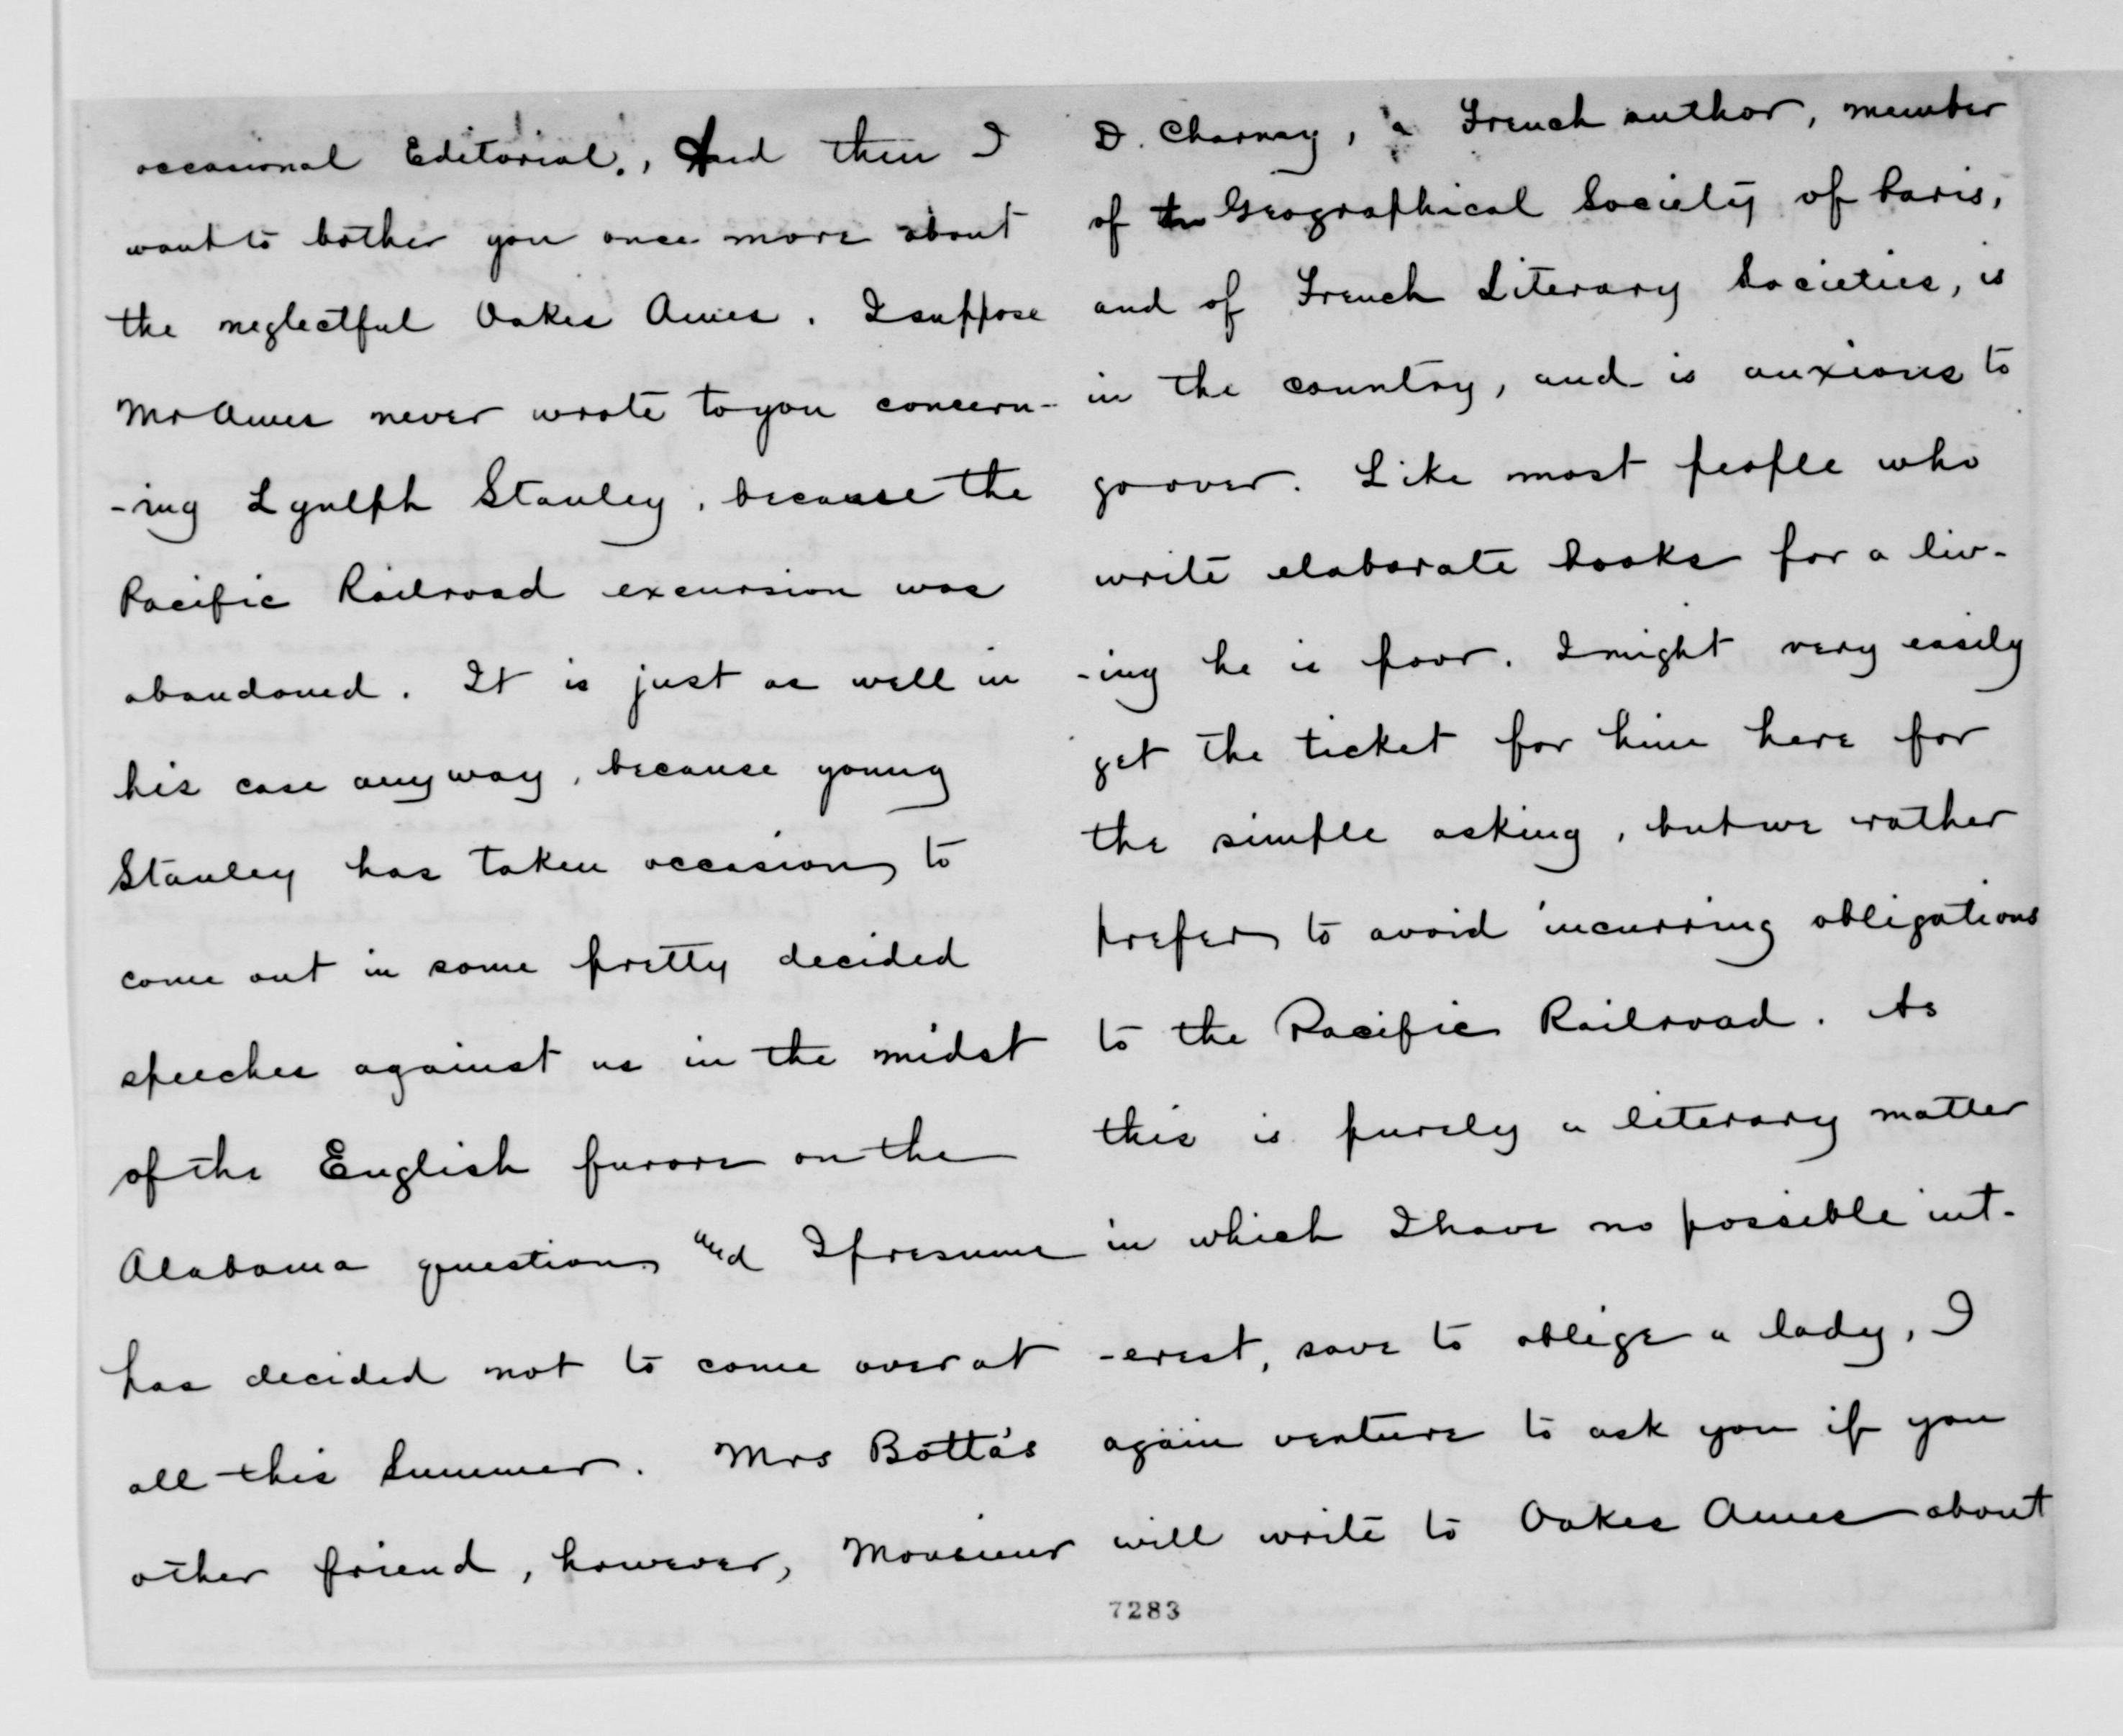 occasional Editorial., And then I
want to bother you once more about
the neglectful Oakes Ames. I suppose
Mr Ames never wrote to you concern-
-ing Lyulph Stanley, because the
Pacific Railroad excursion was
abandoned. It is just as well in
his case anyway, because young
Stanley has taken occasion to
come out in some pretty decided
speeches against us in the midst
of the English furore on the
Alabama question and I presume
has decided not to come over at
all this Summer. Mrs Botta's
other friend, however, Monsieur
D. Charnay, a French author, member
of the Geographical Society of Paris,
and of French Literary Societies, is
in the country, and is anxious to
go over. Like most people who
write elaborate books for a liv-
-ing he is poor. I might very easily
get the ticket for him here for
the simple asking, but we rather
prefer to avoid incurring obligations
to the Pacific Railroad. As
this is purely a literary matter
in which I have no possible int-
-erest, save to oblige a lady, I
again venture to ask you if you
will write to Oakes Ames about
7283